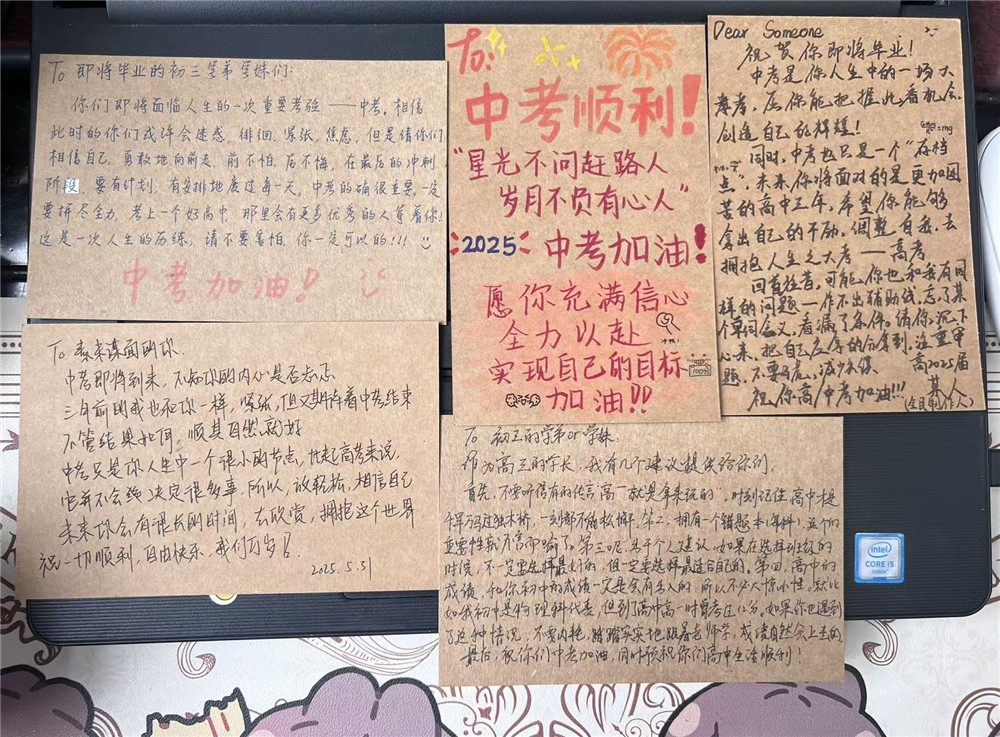 To 即将毕业的初三学弟学妹们:
你们即将面临人生的一次重要考验——中考。相信
此时的你们或许会迷惑、徘徊、紧张、焦虑,但是请你们
相信自己,勇敢地向前走,前不怕,后不悔,在最后的冲刺
阶段,要有计划,有安排地度过每一天。中考的确很重要,一定
要拼尽全力,考上一个好高中,那里会有更多优秀的人等着你!
这是一次人生的历练,请不要害怕,你一定可以的!!!
中考加油!
To:
中考顺利!
“星光不问赶路人
岁月不负有心人”
2025 中考加油!
愿你充满信心
全力以赴
实现自己的目标
加油!!
100%
Dear Someone
祝贺你即将毕业!
中考是你人生中的一场大
考,愿你能把握此番机会,
创造自己的辉煌!
同时,中考也只是一个“存档
点”,未来你将面对的是更加困
苦的高中三年,希望你能够
拿出自己的不励,调整自我,去
拥抱人生之大考——高考
回首往昔,可能你也和我有同
样的问题——作不出辅助线,忘了某
个单词含义,看漏了条件。请你沉下
心来,把自己应拿的分拿到,注重审
题,不要马虎,
祝你高/中考加油!!!
高2025届
某人
To 素未谋面的你
中考即将到来,不知你的内心是否忐忑
三年前的我也和你一样,紧张,但又期许着中考结束
不管结果如何,顺其自然就好
中考只是你人生中一个很小的节点,比起高考来说
它并不会 决定很多事,所以,放轻松,相信自己
未来你会有很长的时间,去欣赏,拥抱这个世界
祝一切顺利,自由快乐,我们万岁!
2025.5.31
To 初三的学弟or学妹:
作为高三的学长,我有几个建议提供给你们。
首先,不要听信有的传言高一就是拿来玩的,时刻记住高中是
千军万马过独木桥,一刻都不能松懈。第二,拥有一个错题本(每科),这个的
重要性就不言而喻了。第三呢,关于个人建议,如果在选择班级的
时候,不一定要选择最好的,但一定要选择最适合自己的。第四,高中的
成绩,和你初中的成绩一定是会有出入的,所以不必大惊小怪。就比
如我初中是物理科代表,但到了高中高一时算考过12分,如果你也遇到
了这种情况,不要内耗,踏踏实实地跟着老师学,成绩自然会上去的。
最后,祝你们中考加油,同时预祝你们高中生活顺利!
intel
CORE i5
inside